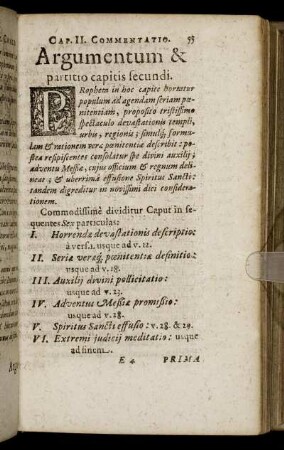 CAP. II. COMMENTATIO. 55
Argumentum &
partitio capitis secundi.
PRopheta in hoc capite hortatur
populum ad agendam seriam pœ-
nitentiam, proposito tristissimo
spectaculo devastationis templi,
urbis, regionis; simulq; formu-
lam & rationem veræ pœnitentiæ describit: po-
stea respiscentes consolatur spe divini auxilij &
adventu Messiæ, cujus officium & regnum deli-
neat; & uberrimâ effusione Spiritus Sancti:
tandem digreditur in novissimi diei conside-
rationem.
Commodissimè dividitur Caput in se-
quentes Sex particulas:
I. Horrendæ devastationis descriptio:
à vers. 1. usque ad v. 12.
II. Seriæ veræq; pœnitentiæ definitio:
usque ad v. 18.
III. Auxilij divini pollicitatio:
usque ad v. 23.
IV. Adventus Messiæ promissio:
usque ad v. 28.
V. Spiritus Sancti effusio: v. 28. & 29.
VI. Extremi judicij meditatio: usque
ad finem.
E 4 PRIMA